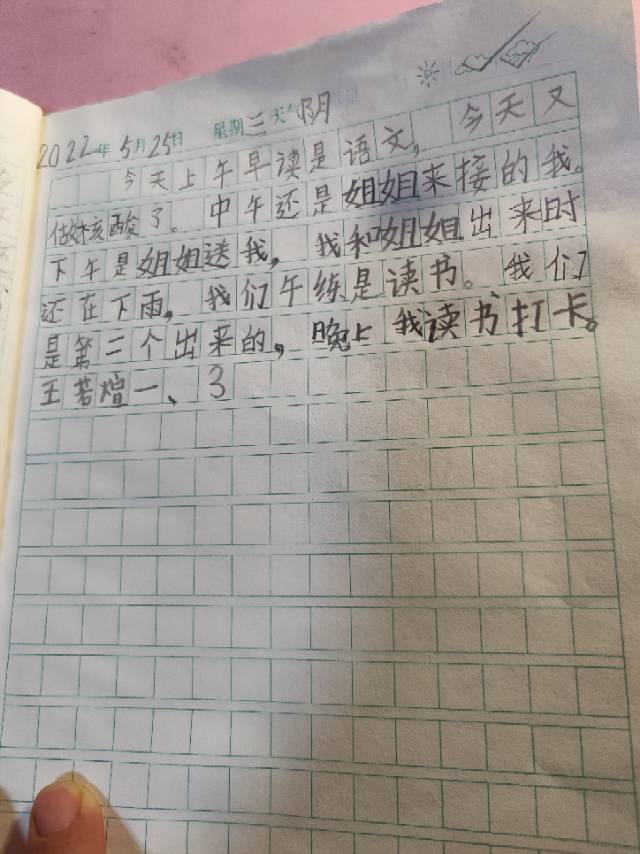 2022年5月25日 星期三 天气阴
今天上午早读是语文，今天又
做核酸了。中午还是姐姐来接的我。
下午是姐姐送我，我和姐姐出来时
还在下雨，我们午练是读书。我们
是第二个出来的，晚上我读书打卡。
王若煊一、3